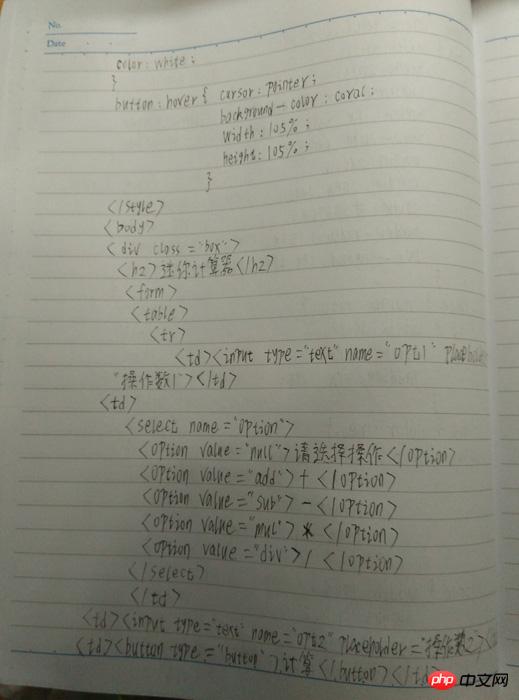 No.
Date
color: white;
}
button:hover { cursor: pointer;
background-color: coral;
width: 105%;
height: 105%;
}
</style>
<body>
<div class="box">
<h2>迷你计算器</h2>
<form>
<table>
<tr>
<td><input type="text" name="opt1" placehol
"操作数1"></td>
<td>
<select name="option">
<option value="null">请选择操作</option>
<option value="add">+</option>
<option value="sub">-</option>
<option value="mul">*</option>
<option value="div">/</option>
</select>
</td>
<td><input type="text" name="opt2" placeholder="操作数2"><
<td><button type="button">计算</button></td>
php中文网